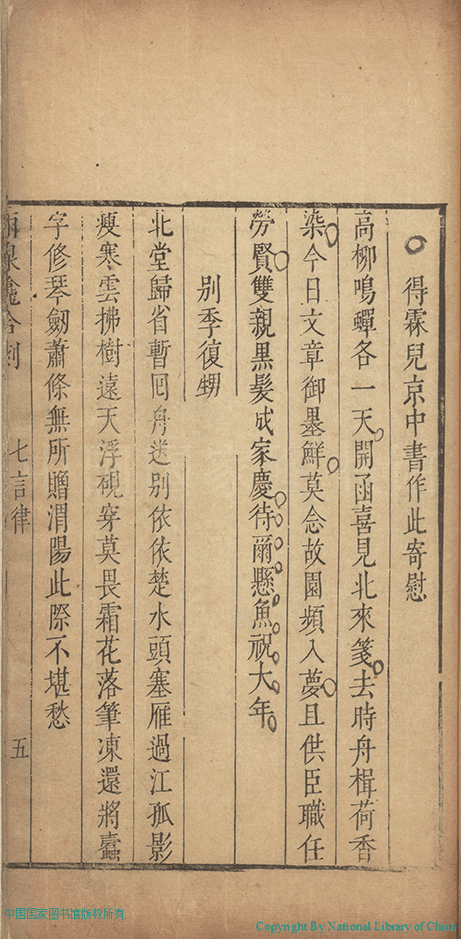 得霖兒京中書作此寄慰
高柳鳴蟬各一天開函喜見北來箋去時舟楫荷香
染今日文章御墨鮮莫念故園頻入夢且供臣職任
勞賢雙親黒髪成家慶待爾懸魚祝大年
别季復甥
北堂歸省暫囘舟送别依依楚水頭塞雁過江孤影
瘦寒雲拂樹遠天浮硯穿莫畏霜花落筆凍還將蠹
字修琴劒蕭條無所贈渭陽此際不堪愁
七言律
五
中国国家图书馆版权所有
Copyright By National Library of China